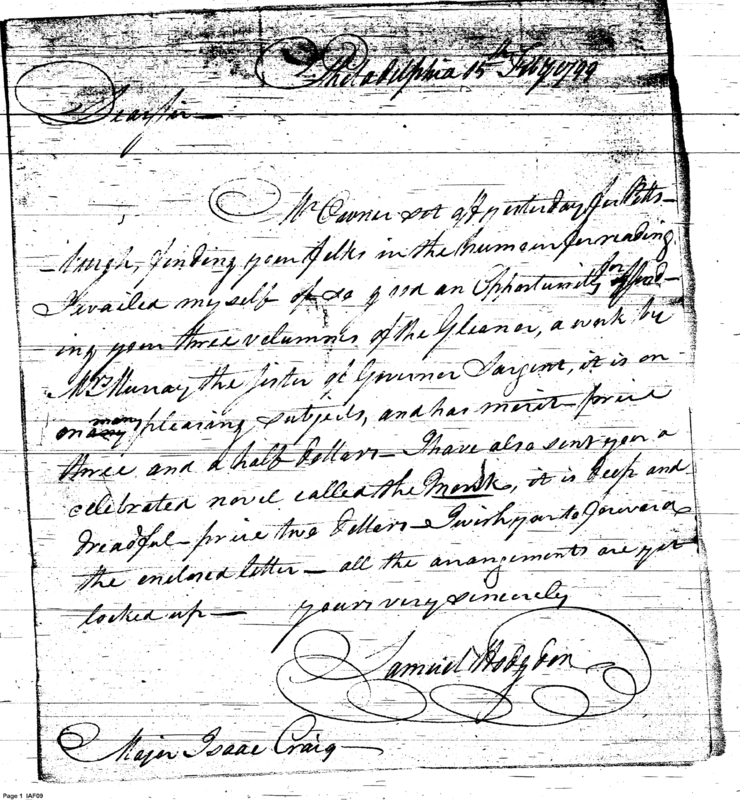 Philadelphia 15th Feby 1799
Dear Sir —
Mr Cavner set off yesterday for Pitts-
-burgh, finding your folks in the humour for reading
I availed myself of so good an Opportunity for send-
ing your three volumnes of the Gleanor, a work by
Mrs Murray the sister of Governor Sargent, it is on
on many pleasing subjects, and has merit – price
three and a half Dollars – I have also sent you a
celebrated novel called the Monk, it is deep and
dreadful – price two Dollars – I wish you to forward
the enclosed letter – all the arrangements are yet
locked up — yours very sincerely
Samuel Hodgdon
Major Isaac Craig —
Page 1 IAF09